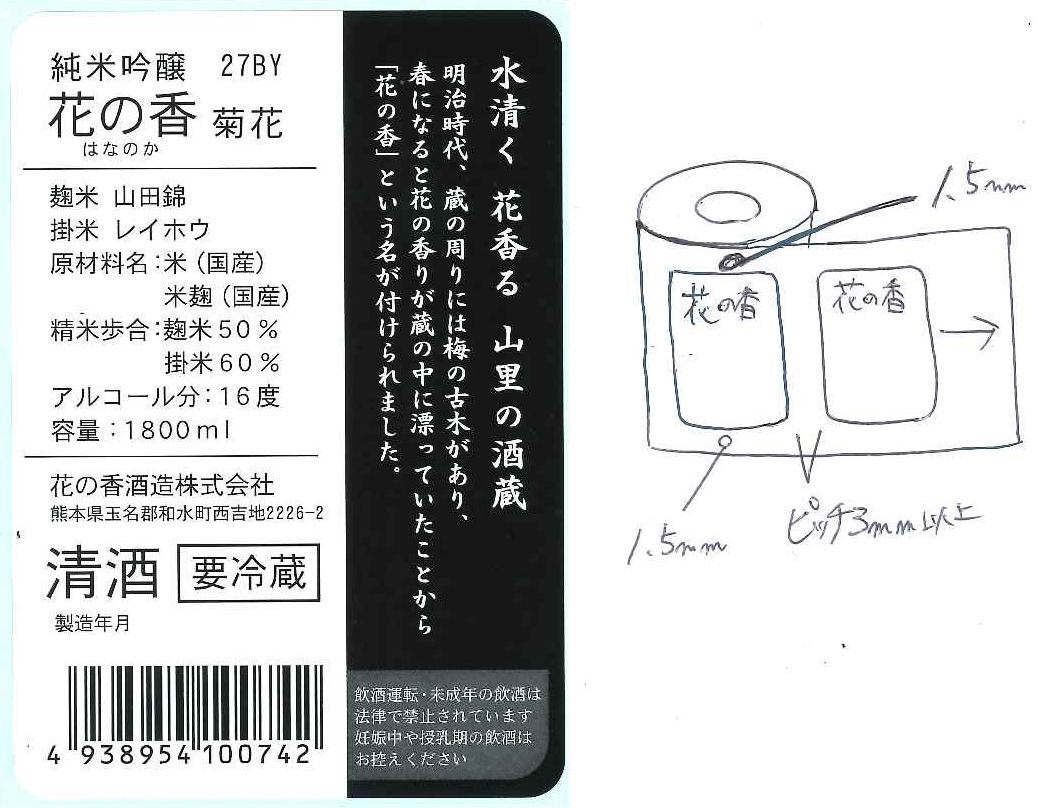 純米吟醸 27BY
花の香 菊花
はなのか
麹米 山田錦
掛米 レイホウ
原材料名：米（国産）
米麹（国産）
精米歩合：麹米50％
掛米60％
アルコール分：16度
容量：1800ml
花の香酒造株式会社
熊本県玉名郡和水町西吉地2226-2
清酒 要冷蔵
製造年月
4 938954 100742
水清く 花香る 山里の酒蔵
明治時代、蔵の周りには梅の古木があり、
春になると花の香りが蔵の中に漂っていたことから
「花の香」という名が付けられました。
飲酒運転・未成年の飲酒は
法律で禁止されています
妊娠中や授乳期の飲酒は
お控えください
1.5mm
花の香
花の香
1.5mm
ピッチ3mm以上